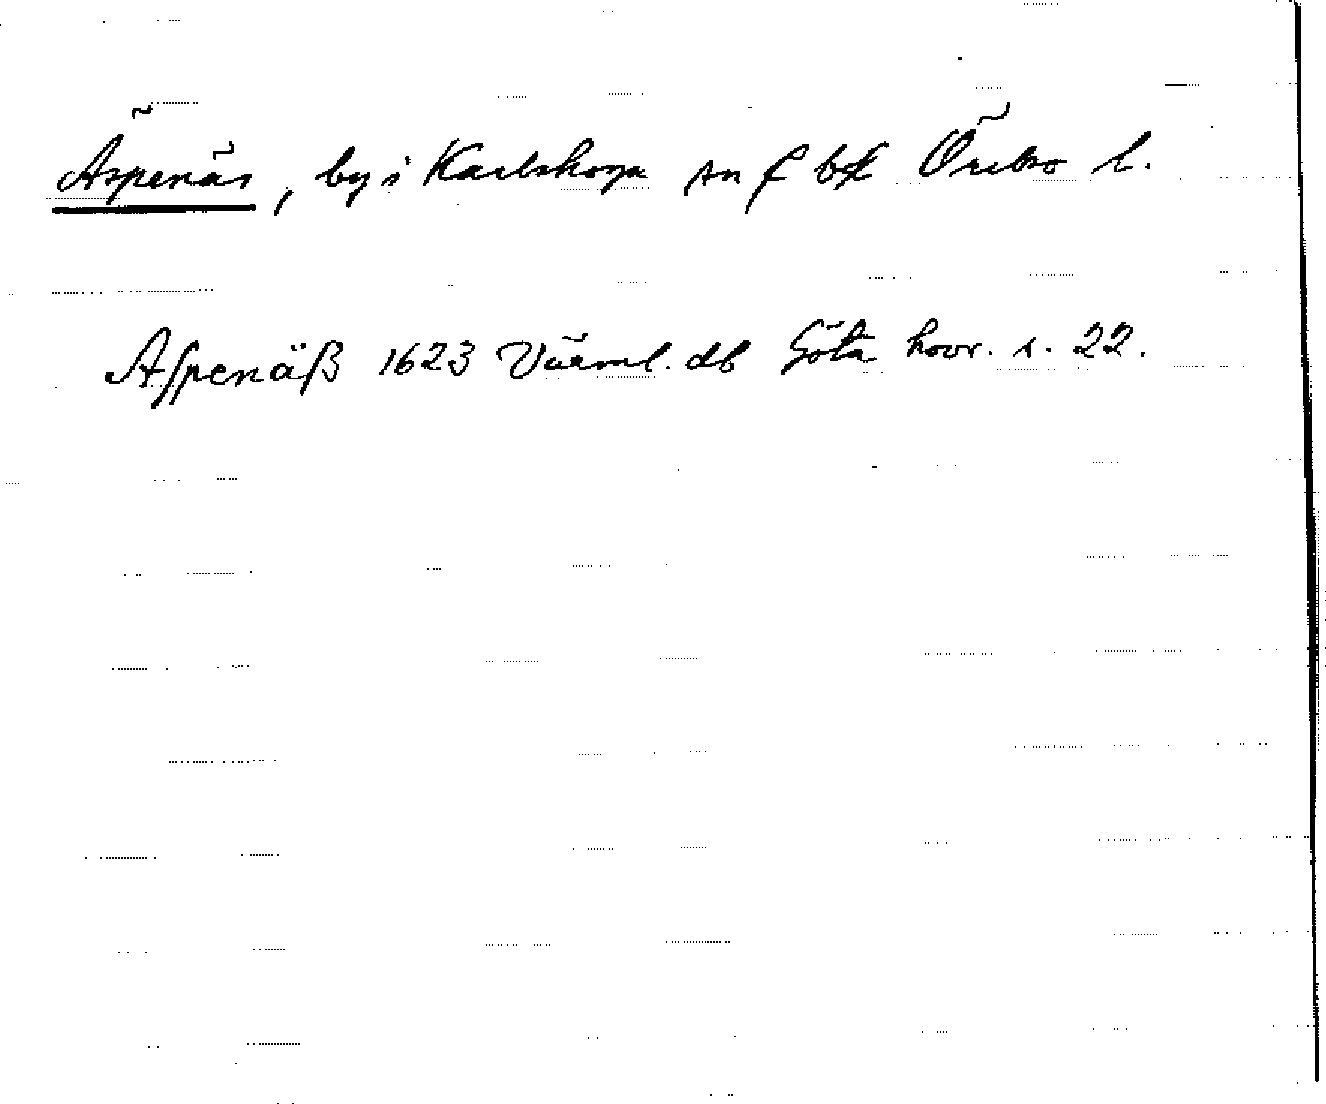 Äspenäs, by i Karlskoga sn f bf Örebro l.
Aſpenäß 1623 Värml. db Göta hovr. s. 22.